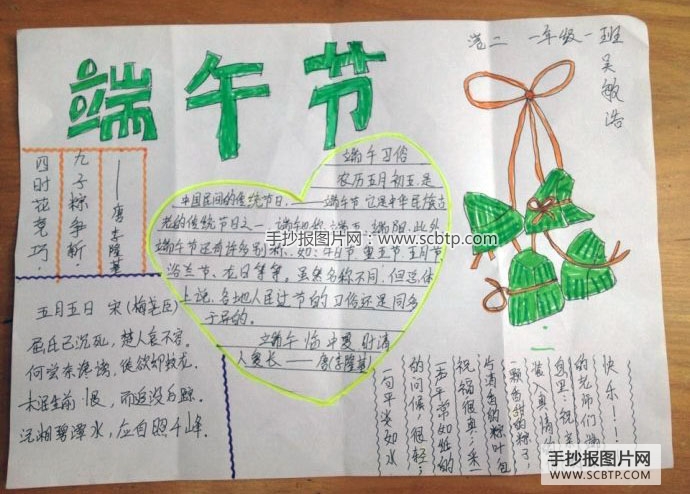 端午节
范二 一年级一班
吴敏浩
四时花竞巧．
九子粽争新．
——唐 李隆基
端午习俗
农历五月初五，是
中国民间的传统节日．——端午节，它是中华民族古
老的传统节日之一．端午也称端五，端阳．此外
端午节还有许多别称，如：午日节、重五节、五月节、
浴兰节、龙日等等．虽然名称不同，但总体
上说，各地人民过节的习俗还是同多
于异的．
端午临中夏，时清
人复长——唐（李隆基）
手抄报图片网：www.scbtp.com
五月五日 宋（梅尧臣）
屈氏已沉死，楚人哀不容．
何尝奈谗谤，徒欲却蛟龙．
未泯生前恨，而追没后踪．
沅湘碧潭水，应自照千峰．
一句平淡如水
的问候，很轻；
一声平常如纸的
祝福，很真；采一
片清香的粽叶，包
一颗香甜的粽子，
装入真情
快乐！！
手抄报图片网
SCBTP.COM